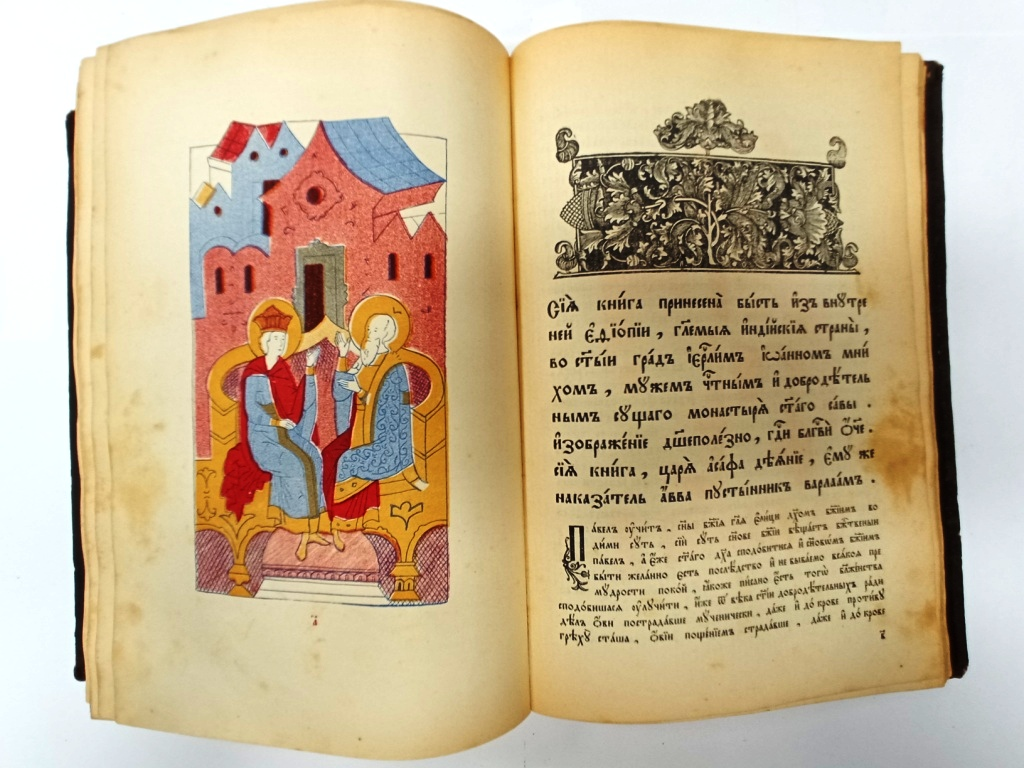 а҃
Сїѧ̀ кни́га принесена̀ бы́сть и҆зъ внꙋ́тре
ней є҆ѳїо́пїи , гл҃емыѧ и҆нді́йскїѧ страны̀ ,
во ст҃ы́и гра́дъ і҆ер҃ли́мъ і҆ѡа́нномъ мни́
хомъ , мꙋ́жемъ чⷭ҇тны́мъ и҆ добродѣ́тель
нымъ сꙋ́щаго монастырѧ̀ ст҃а́го са́вы .
и҆зображе́нїе дш҃еполе́зно , гдⷭ҇и бл҃гвѝ ѻ҆́че .
сїѧ̀ кни́га , царѧ̀ а҆са́фа дѣѧ́нїе , є҆мꙋ́ же
наказа́тель а҆́вва пꙋсты́нникъ варлаа́мъ .
Па́велъ ᲂу҆чи́тъ , сн҃ы бж҃їѧ гл҃ѧ є҆ли́цы дх҃омъ бж҃їимъ во
ди́ми сꙋ́ть , сі́и сꙋ́ть сн҃ове бж҃їи вѣща́етъ бж҃е́ственыи
па́велъ , а҆ є҆́же ст҃а́го дх҃а сподо́битисѧ и҆ сн҃овѡ́мъ бж҃їимъ
бы́ти жела́нно є҆́сть послѣ́дство и҆ не быва́емо всѧ́коѧ пре
мꙋ́дрости поко́й , ꙗ҆́коже пи́сано є҆́сть тогѡ̀ блаже́нства
сподо́бишасѧ ᲂу҆лꙋчи́ти , и҆̀же ѿ вѣ́ка ст҃і́и добродѣ́тельныхъ ра́ди
дѣ́лъ ѻ҆́ви пострада́вше мꙋ́ченически , да́же и҆ до́ крове проти́вꙋ
грѣхꙋ̀ ста́ша , ѻ҆́вїи поще́нїемъ страда́вше , да́же и҆ до́ крове